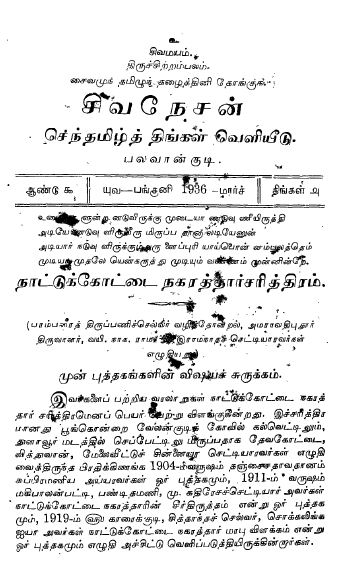 உ
சிவமயம்.
திருச்சிற்றம்பலம்.
சைவமுந் தமிழுந் தழைத்தினி தோங்குக.
சிவநேசன்
செந்தமிழ்த் திங்கள் வெளியீடு.
பலவான்குடி.
ஆண்டு ௯ யுவ—பங்குனி 1936 -மார்ச் திங்கள் ௮
நாட்டுக்கோட்டை நகரத்தார்சரித்திரம்.
(பரம்பரைத் திருப்பணிச்செல்வர் வழித்தோன்றல், அமராவதிபுதூர்
திருவாளர், வயி. நாக. ராம. அ. இராமநாதச் செட்டியாரவர்கள்
எழுதியது)
முன் புத்தகங்களின் விஷயச் சுருக்கம்.
இவர்களைப் பற்றிய வரலாறுகள் நாட்டுக்கோட்டை நகரத்
தார் சரித்திரமெனப் பெயர் பெற்று விளங்குகின்றது. இச்சரித்திர
மானது பூங்கொன்றை வேலன்குடிக் கோவில் கல்வெட்டிலும்,
துளாவூர் மடத்தில் செப்பேட்டிலு மிருப்பதாக தேவகோட்டை,
வித்துவான், மேலைவீட்டுச் சின்னைய செட்டியாரவர்கள் எழுதி
வைத்திருந்த பிரதிக்கிணங்க 1904-ம்வருஷம் தஞ்சைசதாவதானம்
சுப்பிரமணிய அய்யரவர்கள் ஓர் புத்தகமும், 1911-ம் வருஷம்
மகிபாலன்பட்டி, பண்டிதமணி, மு. கதிரேசச்செட்டியார் அவர்கள்
நாட்டுக்கோட்டை நகரத்தாரின் சீர்திருத்தம் என்று ஓர் புத்தக
மும், 1919-ம் வரு காரைக்குடி, சித்தாந்தச் செல்வர், சொக்கலிங்க
ஐயா அவர்கள் நாட்டுக்கோட்டை நகரத்தார் மரபு விளக்கம் என்று
ஓர் புத்தகமும் எழுதி அச்சிட்டு வெளிப்படுத்தியிருக்கின்றார்கள்.